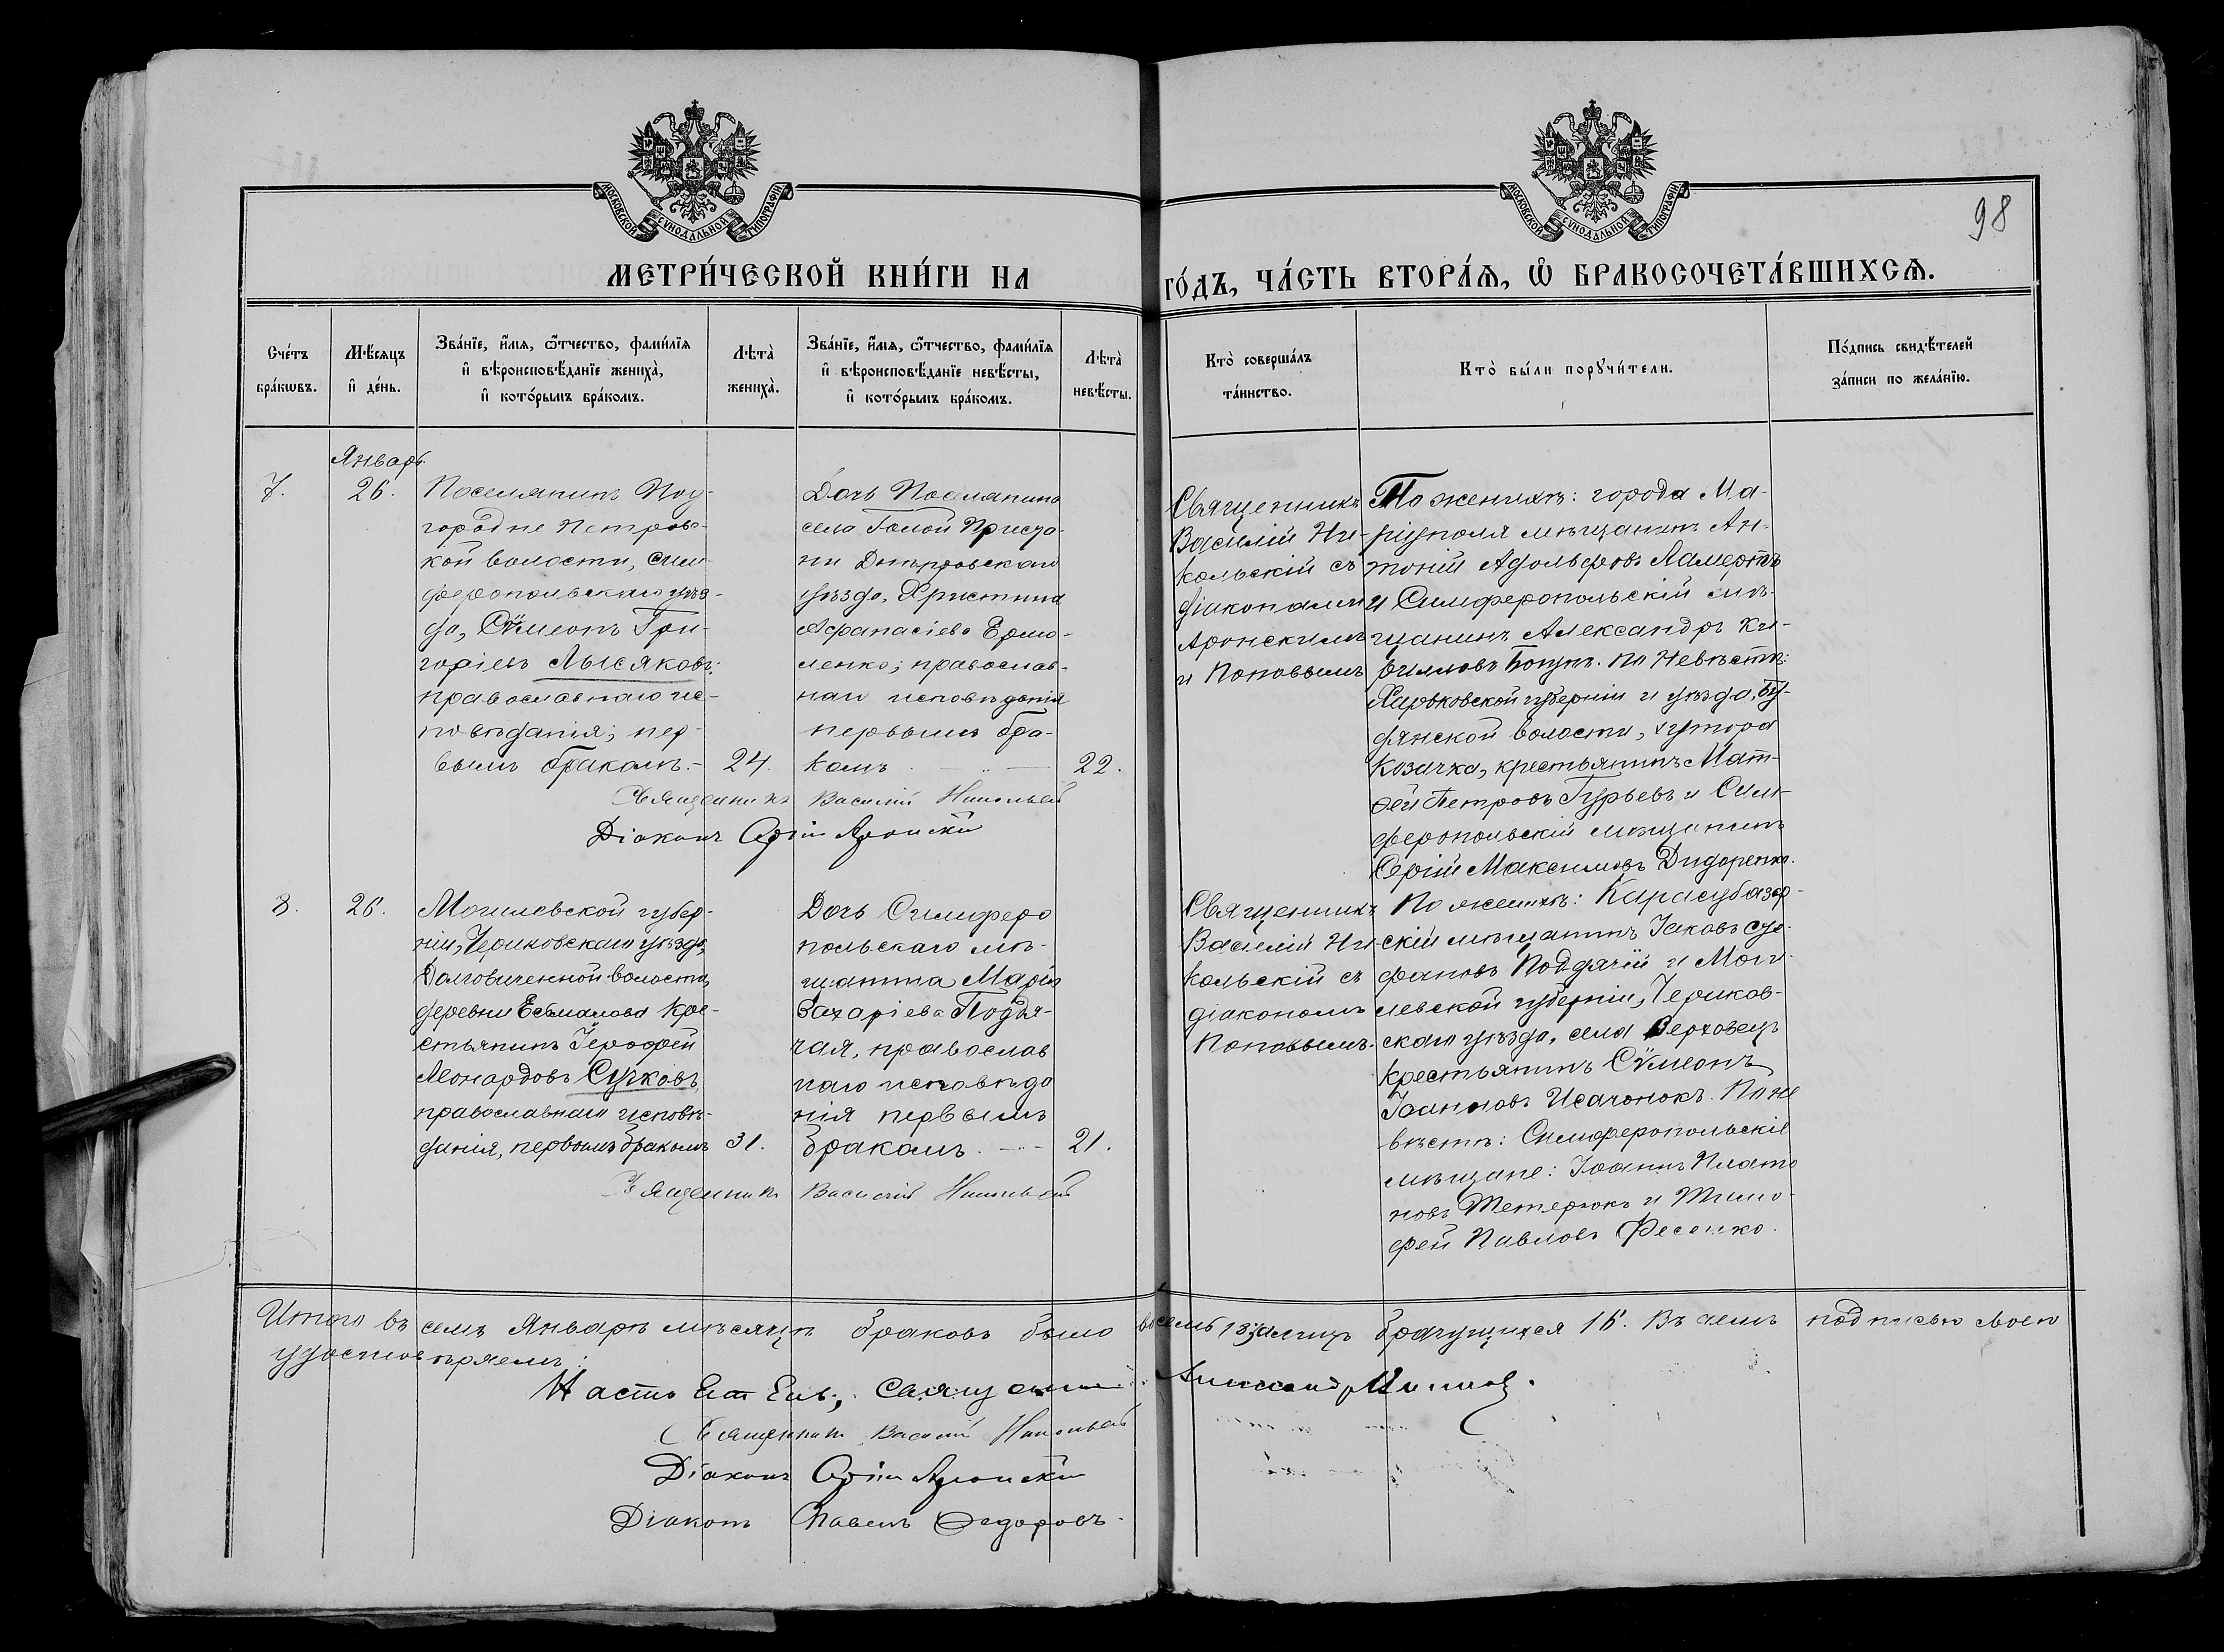 МОСКОВСКОЙ СУНОДАЛЬНОЙ ТИПОГРАФІИ
МОСКОВСКОЙ СУНОДАЛЬНОЙ ТИПОГРАФІИ
98
МЕТРИ́ЧЕСКОЙ КНИ́ГИ НА ГО́ДЪ, ЧА́СТЬ ВТОРА́Ѧ, Ѡ БРАКОСОЧЕТА́ВШИХСѦ.
Сче́тъ
бра́кѡвъ.
Мѣ́сяцъ
и҆ де́нь.
Зва́нїе, и҆́мѧ, ѻ҆́тчество, фами́лїѧ
и҆ вѣроисповѣ́данїе жениха̀,
и҆ кото́рымъ бра́комъ.
Лѣта̀
жениха̀.
Зва́нїе, и҆́мѧ, ѻ҆́тчество, фами́лїѧ
и҆ вѣроисповѣ́данїе невѣ́сты,
и҆ кото́рымъ бра́комъ.
Лѣта̀
невѣ́сты.
Кто̀ соверша́лъ
та́инство.
Кто̀ бы́ли порꙋчи́тели.
По́дпись свидѣ́телей
за́писи по жела́нїю.
Январь.
7.
26.
Поселянинъ Под-
городне Петровс-
кой волости, Сим-
феропольскаго уѣз-
да, Сѵмеонъ Гри-
горіевъ Лысяковъ:
православнаго ис-
повѣданія; пер-
вымъ бракомъ. —
24.
Дочь Поселянина
села Голой Приста-
ни Днѣпровскаго
уѣзда, Христина
Афанасіева Ермо-
ленко; православ-
наго исповѣданія
первымъ бра-
комъ
22.
Священникъ Василій Никольскій
Діаконъ Сергій Яронскій
Священникъ
Василій Ни-
кольскій съ
діаконами
Яронскимъ
и Поповымъ
По женихѣ: города Ма-
ріуполя мѣщанинъ Ан-
тоній Адольфовъ Ламертъ
и Симферопольскій мѣ-
щанинъ Александръ Ки-
рилловъ Боцунъ. По Невѣстѣ:
Харьковской губерніи и уѣзда,
волости, хутора
Козачка, крестьянинъ Мат-
фей Петровъ Гурьевъ и Сим-
феропольскій мѣщанинъ
Сергій Максимовъ Дидоренко.
8.
26.
Могилевской губер-
ніи, Чериковскаго уѣзда,
волости,
деревни крe-
стьянинъ Іерофей
Леонардовъ Сучковъ
православнаго исповѣ-
данія, первымъ бракомъ
31.
Дочь Симферо
польскаго мѣ-
щанина Марія
Захаріева Подъя-
чая, православ
наго исповѣда
нія первымъ
бракомъ. —
21.
Священникъ Василій Никольскій
Священникъ
Василій Ни-
кольскій съ
діакономъ
Поповымъ.
По женихѣ: Карасубазар-
скій мѣщанинъ Іаковъ Сте-
фановъ Подъячій и Моги-
левской губерніи, Чериков-
скаго уѣзда, села Верховецъ
крестьянинъ Сѵмеонъ
Іоанновъ Исачонокъ. По не
вѣстѣ: Симферопольскіе
мѣщане: Іоаннъ Плато
новъ Тетерюкъ и Тимо-
фей Павловъ Фесенко.
Итого въ семъ Январѣ мѣсяцѣ браковъ было восемь (8), а лицъ брачущихся 16. Въ чемъ подписью своею
удостовѣряемъ:
Настоятель, Священникъ
Священникъ Василій Никольскій
Діаконъ Сергій Яронскій
Діаконъ Павелъ Ѳедоровъ.